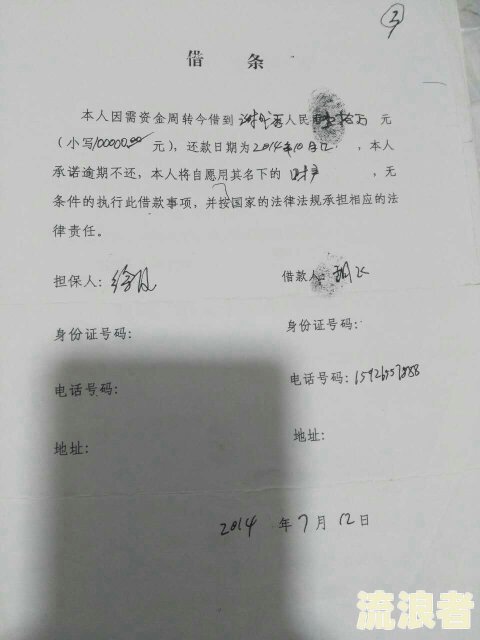 3
借 条
本人因需资金周转今借到 人民币 拾万 元
(小写100000.00 元),还款日期为2014年10月 日,本人
承诺逾期不还,本人将自愿用其名下的 ,无
条件的执行此借款事项,并按国家的法律法规承担相应的法
律责任。
担保人: 借款人:
身份证号码: 身份证号码:
电话号码: 电话号码:
地址: 地址:
2014 年 7 月 12 日
流浪者